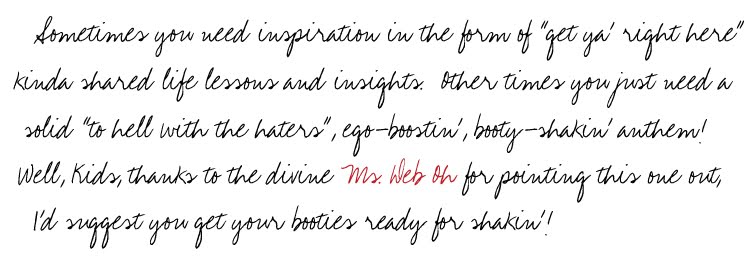 Sometimes you need inspiration in the form of "get ya' right here"
kinda shared life lessons and insights. Other times you just need a
solid "to hell with the haters", ego-boostin', booty-shakin' anthem!
Well, Kids, thanks to the divine Ms. Web Oh for pointing this one out,
I'd suggest you get your booties ready for shakin'!